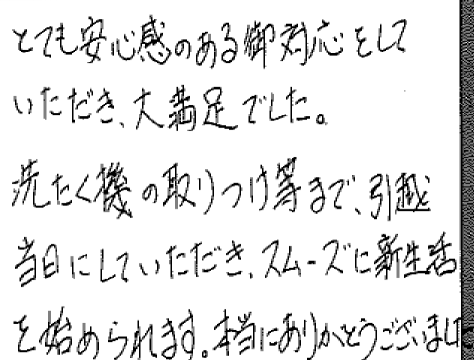 とても安心感のある御対応をして
いただき、大満足でした。
洗たく機の取りつけ等まで、引越
当日にしていただき、スムーズに新生活
を始められます。本当にありがとうございまし